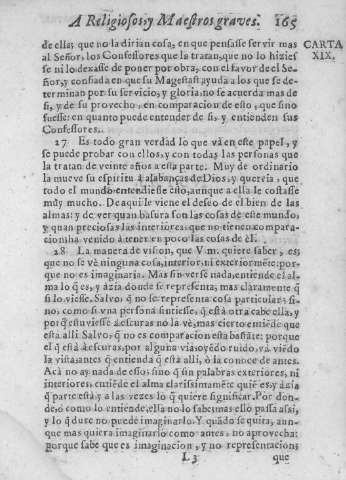 A Religiosos, y Maestros graves. 165
de ella; que no la dirian cosa, en que pensasse servir mas
al Señor, los Confessores que la tratan, que no lo hiziesse
ni lo dexasse de poner por obra, con el favor de el Señor,
y confiada en que su Magestad ayuda a los que se determinan
por su servicio, y gloria, no se acuerda mas de
si, y de su provecho, en comparacion de esto, que sino
fuesse: en quanto puede entender de si, y entienden sus
Confessores.
CARTA
XIX.
27 Es todo gran verdad lo que vá en este papel, y
se puede probar con ellos, y con todas las personas que
la tratan de veinte años a esta parte. Muy de ordinario
la mueve su espiritu á alabanças de Dios, y querria, que
todo el mundo entendiesse esto, aunque a ella le costasse
muy mucho. De aqui le viene el deseo de el bien de las
almas: y de ver quan basura son las cosas de este mundo,
y quan preciosas las interiores, que no tienen comparacion,
ha venido à tener en poco las cosas de él.
28 La manera de vision, que V.m. quiere saber, es:
que no se vè ninguna cosa, interior, ni exteriormẽte: porque
no es imaginaria. Mas sin verse nada, entiende el alma
lo q̃ es, y ázia donde se representa, mas claramente q̃
si lo viesse. Salvo, q̃ no se representa cosa particular: sino,
como si vna persona sintiesse, q̃ està otra cabe ella, y
por q̃ estuviesse á escuras no la vè, mas cierto entiẽde que
està alli. Salvo, q̃ no es comparacion esta bastãte: porque
el q̃ està à escuras, por alguna via, oyẽdo ruido, vá viẽdo
la vista, antes q̃ entienda q̃ està alli, ò la conoce de antes.
Acà no ay nada de esso: sino q̃ sin palabras exteriores, ni
interiores, entiẽde el alma clarissimamẽte quiẽ es, y ázia
q̃ parte està, y a las vezes lo q̃ quiere significar. Por donde,
ò como lo entiende, ella no lo sabe; mas ello passa assi,
y lo q̃ dure no puede imaginarlo. Y quãdo se quita, aunque
mas quiera imaginarlo como antes, no aprovecha:
porque sabe que es imaginacion, y no representacion:
L 3 que